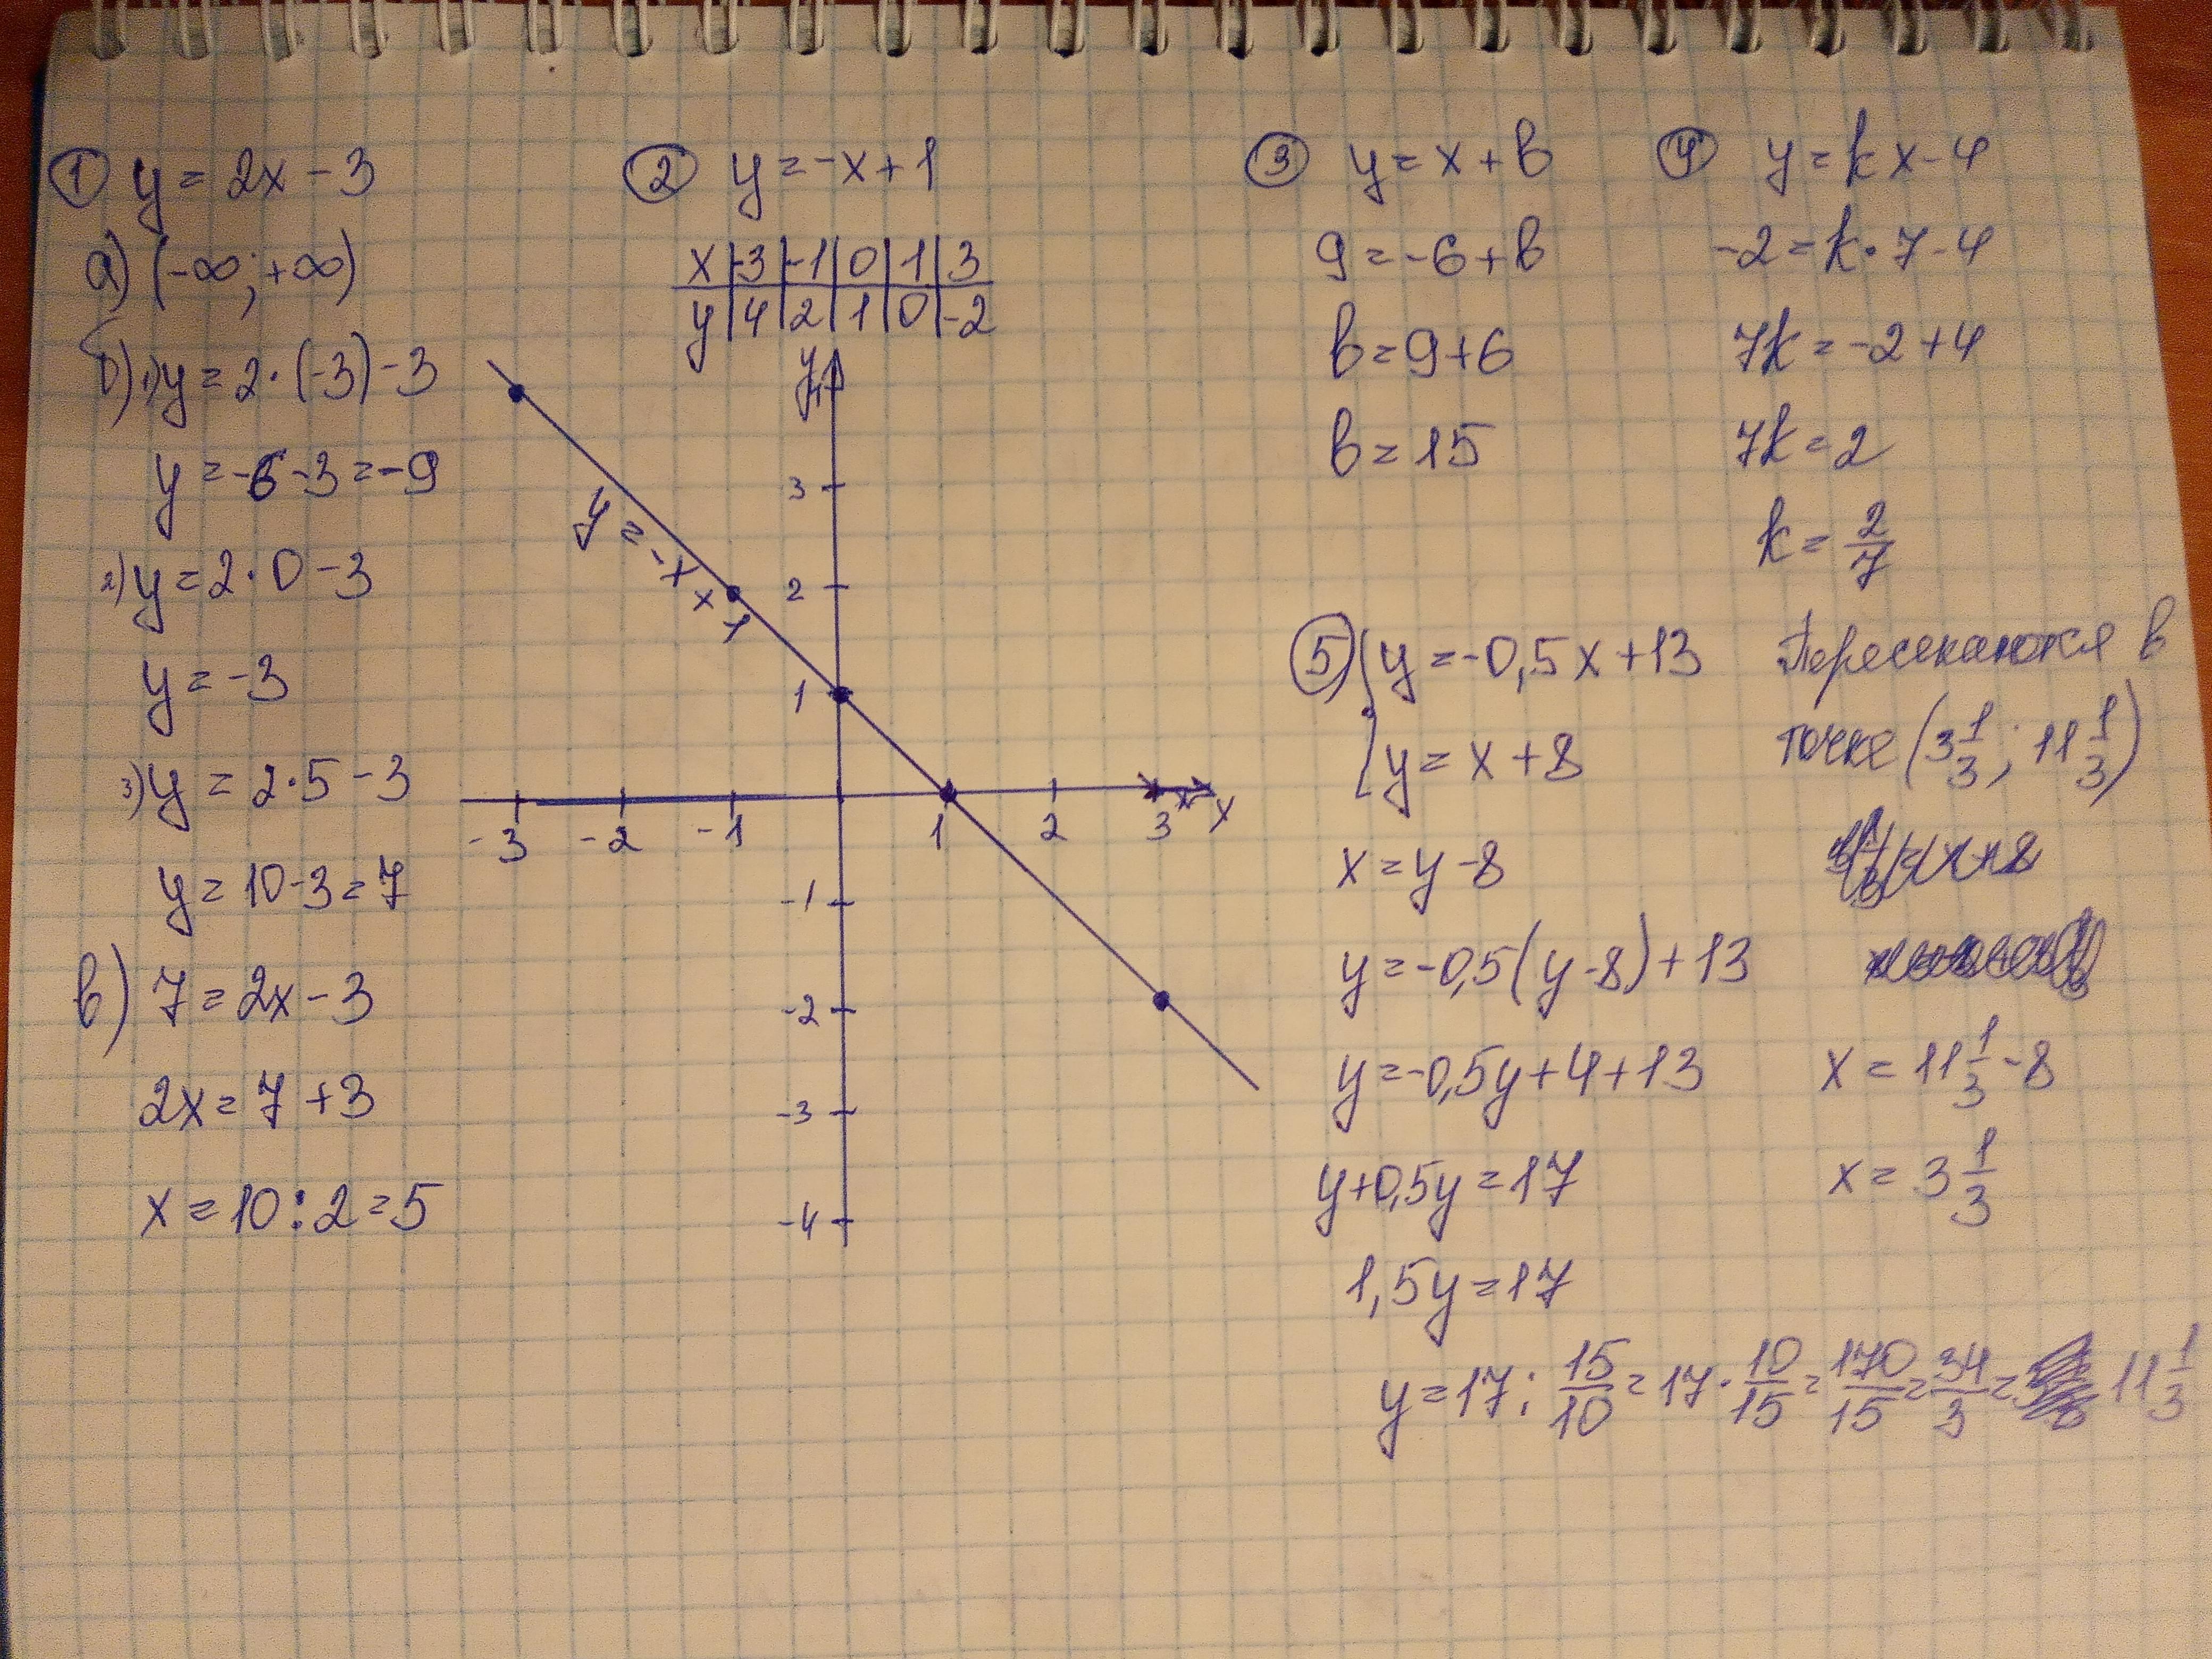 ① y = 2x - 3
а) (-∞; +∞)
б) 1) y = 2·(-3) - 3
y = -6 - 3 = -9
2) y = 2·0 - 3
y = -3
3) y = 2·5 - 3
y = 10 - 3 = 7
в) 7 = 2x - 3
2x = 7 + 3
x = 10 : 2 = 5
② y = -x + 1
x | -3 | -1 | 0 | 1 | 3
y | 4 | 2 | 1 | 0 | -2
y
3
2
1
-3 -2 -1 1 2 3 x
-1
-2
-3
-4
y = -x + 1
③ y = x + b
9 = -6 + b
b = 9 + 6
b = 15
④ y = kx - 4
-2 = k·7 - 4
7k = -2 + 4
7k = 2
k = 2/7
⑤ { y = -0,5x + 13
y = x + 8
x = y - 8
y = -0,5(y - 8) + 13
y = -0,5y + 4 + 13
y + 0,5y = 17
1,5y = 17
y = 17 : 15/10 = 17 · 10/15 = 170/15 = 34/3 = 11 1/3
Пересекаются в
точке (3 1/3; 11 1/3)
x = 11 1/3 - 8
x = 3 1/3